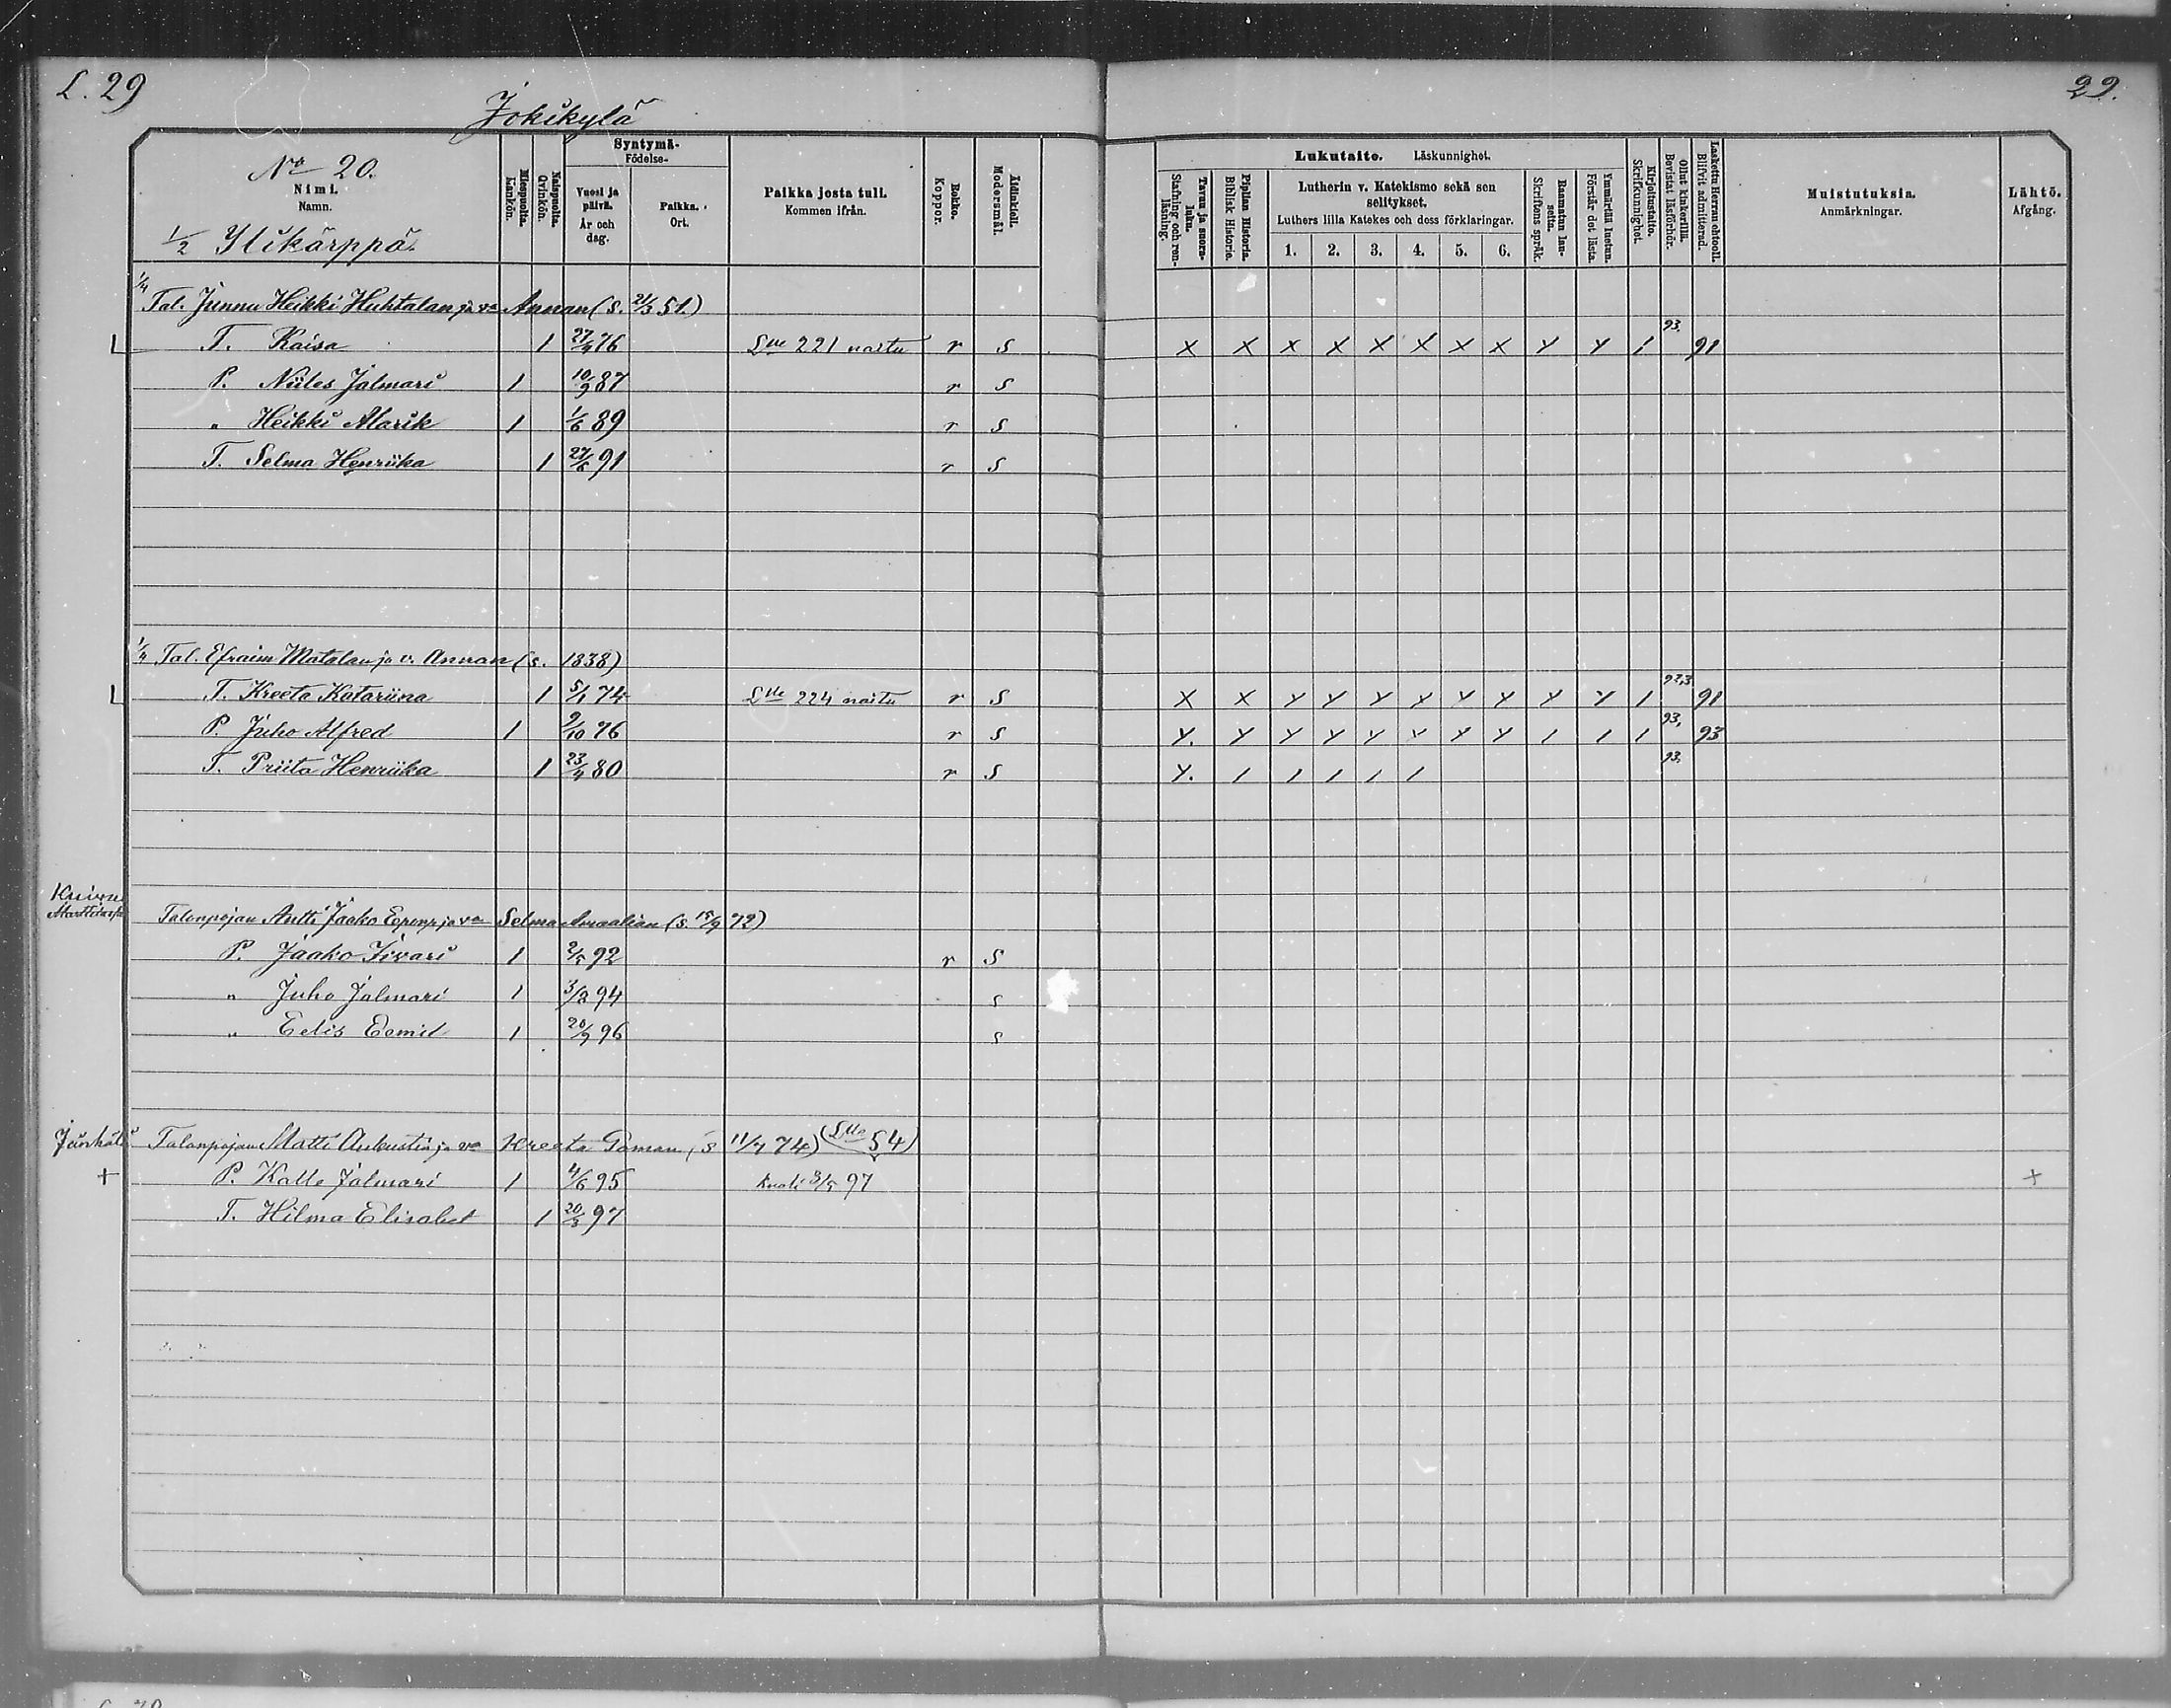 L. 29
29.
Jokikylä
No 20.
Nimi.
Namn.
1/2 Ylikärppä.
Miespuolta. Mankön.
Naispuolta. Qvinkön.
Syntymä-
Födelse-
Vuosi ja päivä.
År och dag.
Paikka.
Ort.
Paikka josta tuli.
Kommen ifrån.
Rokko.
Koppor.
Äidinkieli.
Modersmål.
Lukutaito. Läskunnighet.
Tavuu ja suora-luku.
Stafning och ren-läsning.
Piplian Historia.
Biblisk Historie.
Lutherin v. Katekismo sekä sen selitykset.
Luthers lilla Katekes och dess förklaringar.
1. 2. 3. 4. 5. 6.
Raamatun lau-seita.
Skriftens språk.
Ymmärtää luetun.
Förstår det lästa.
Kirjoitustaito.
Skrifkunnighet.
Ollut kinkerillä.
Bevistat läsförhör.
Laskettu Herran ehtooll.
Blifvit admitterad.
Muistutuksia.
Anmärkningar.
Lähtö.
Afgång.
1/4 Tal. Junnu Heikki Huhtalan ja va Annan (s. 21/3 51.)
L T. Kaisa 1 27/4 76 Lue 221 naitu r S X X X X X X X X Y Y 1 93. 91
P. Niiles Jalmari 1 10/9 87 r S
" Heikki Alarik 1 1/6 89 r S
T. Selma Henriika 1 27/6 91 r S
1/4 Tal. Efraim Matalan ja v. Annan (s. 1838)
L T. Kreeta Katariina 1 5/1 74 Lue 224 naitu r S X X Y Y Y Y Y Y Y Y 1 93 91
P. Juho Alfred 1 9/10 76 r S Y. Y Y Y Y Y Y Y 1 1 1 93, 93
T. Priita Henriika 1 23/4 80 r S Y. 1 1 1 1 1 93.
Talonpojan Antti Jaako ja va Selma Amaalian (s. 15/9 72)
P. Jaako Iivari 1 2/5 92 r S
" Juho Jalmari 1 3/8 94 S
" Eelis Eemil 1 20/9 96 S
Talonpojan Matti ja va Kreeta (s 11/7 74) (Lue 54)
+ P. Kalle Jalmari 1 4/6 95 kuoli 3/5 97 +
T. Hilma Elisabet 1 20/3 97